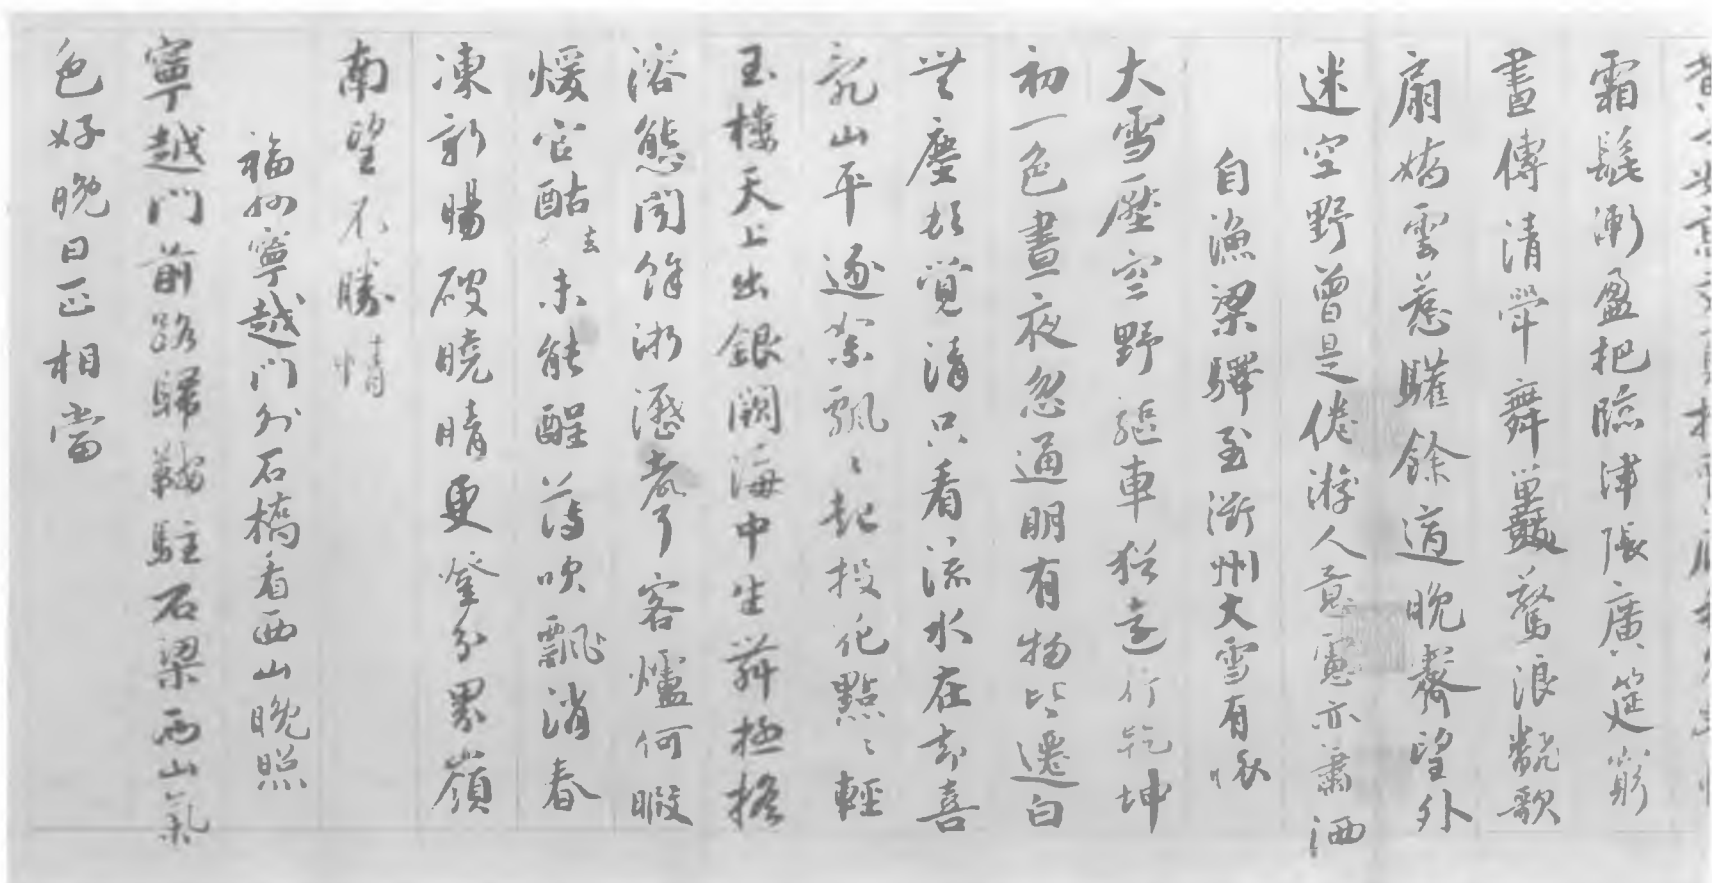 霜髭漸盈把臨津張廣筵窮
晝傳清斝舞鼉驚浪翻歌
扇嬌雲惹驩餘適晚霽望外
迷空野曾是倦遊人意慮亦蕭洒
自漁梁驛至衢州大雪有懷
大雪壓空野驅車猶遠行乾坤
初一色晝夜忽通明有物皆遷白
無塵頓覺清只看流水在却喜
亂山平逐絮飄〻起投花點〻輕
玉樓天上出銀闕海中生舞極搖
溶態聞餘淅瀝聲客爐何暇
煖官酤去未能醒薄吹飄消春
凍新暘破曉晴更登分界嶺
南望不勝情
福州寧越門外石橋看西山晚照
寧越門前路歸鞍駐石梁西山氣
色好晚日正相當